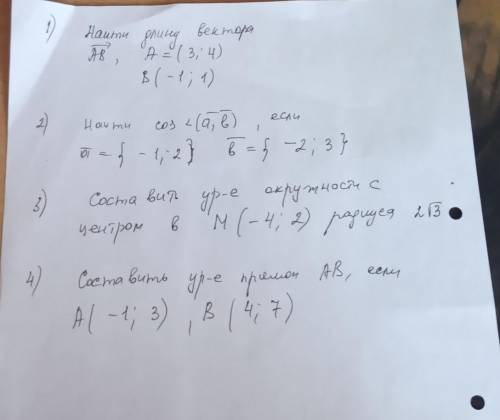 1) Найти длину вектора
AB, A = (3; 4)
B(-1; 1)
2) Найти cos ∠(a, b), если
a = { -1; 2} b = { -2; 3}
3) Составить ур-е окружности с
центром в M(-4; 2) радиуса 2√3
4) Составить ур-е прямой AB, если
A(-1; 3), B(4; 7)